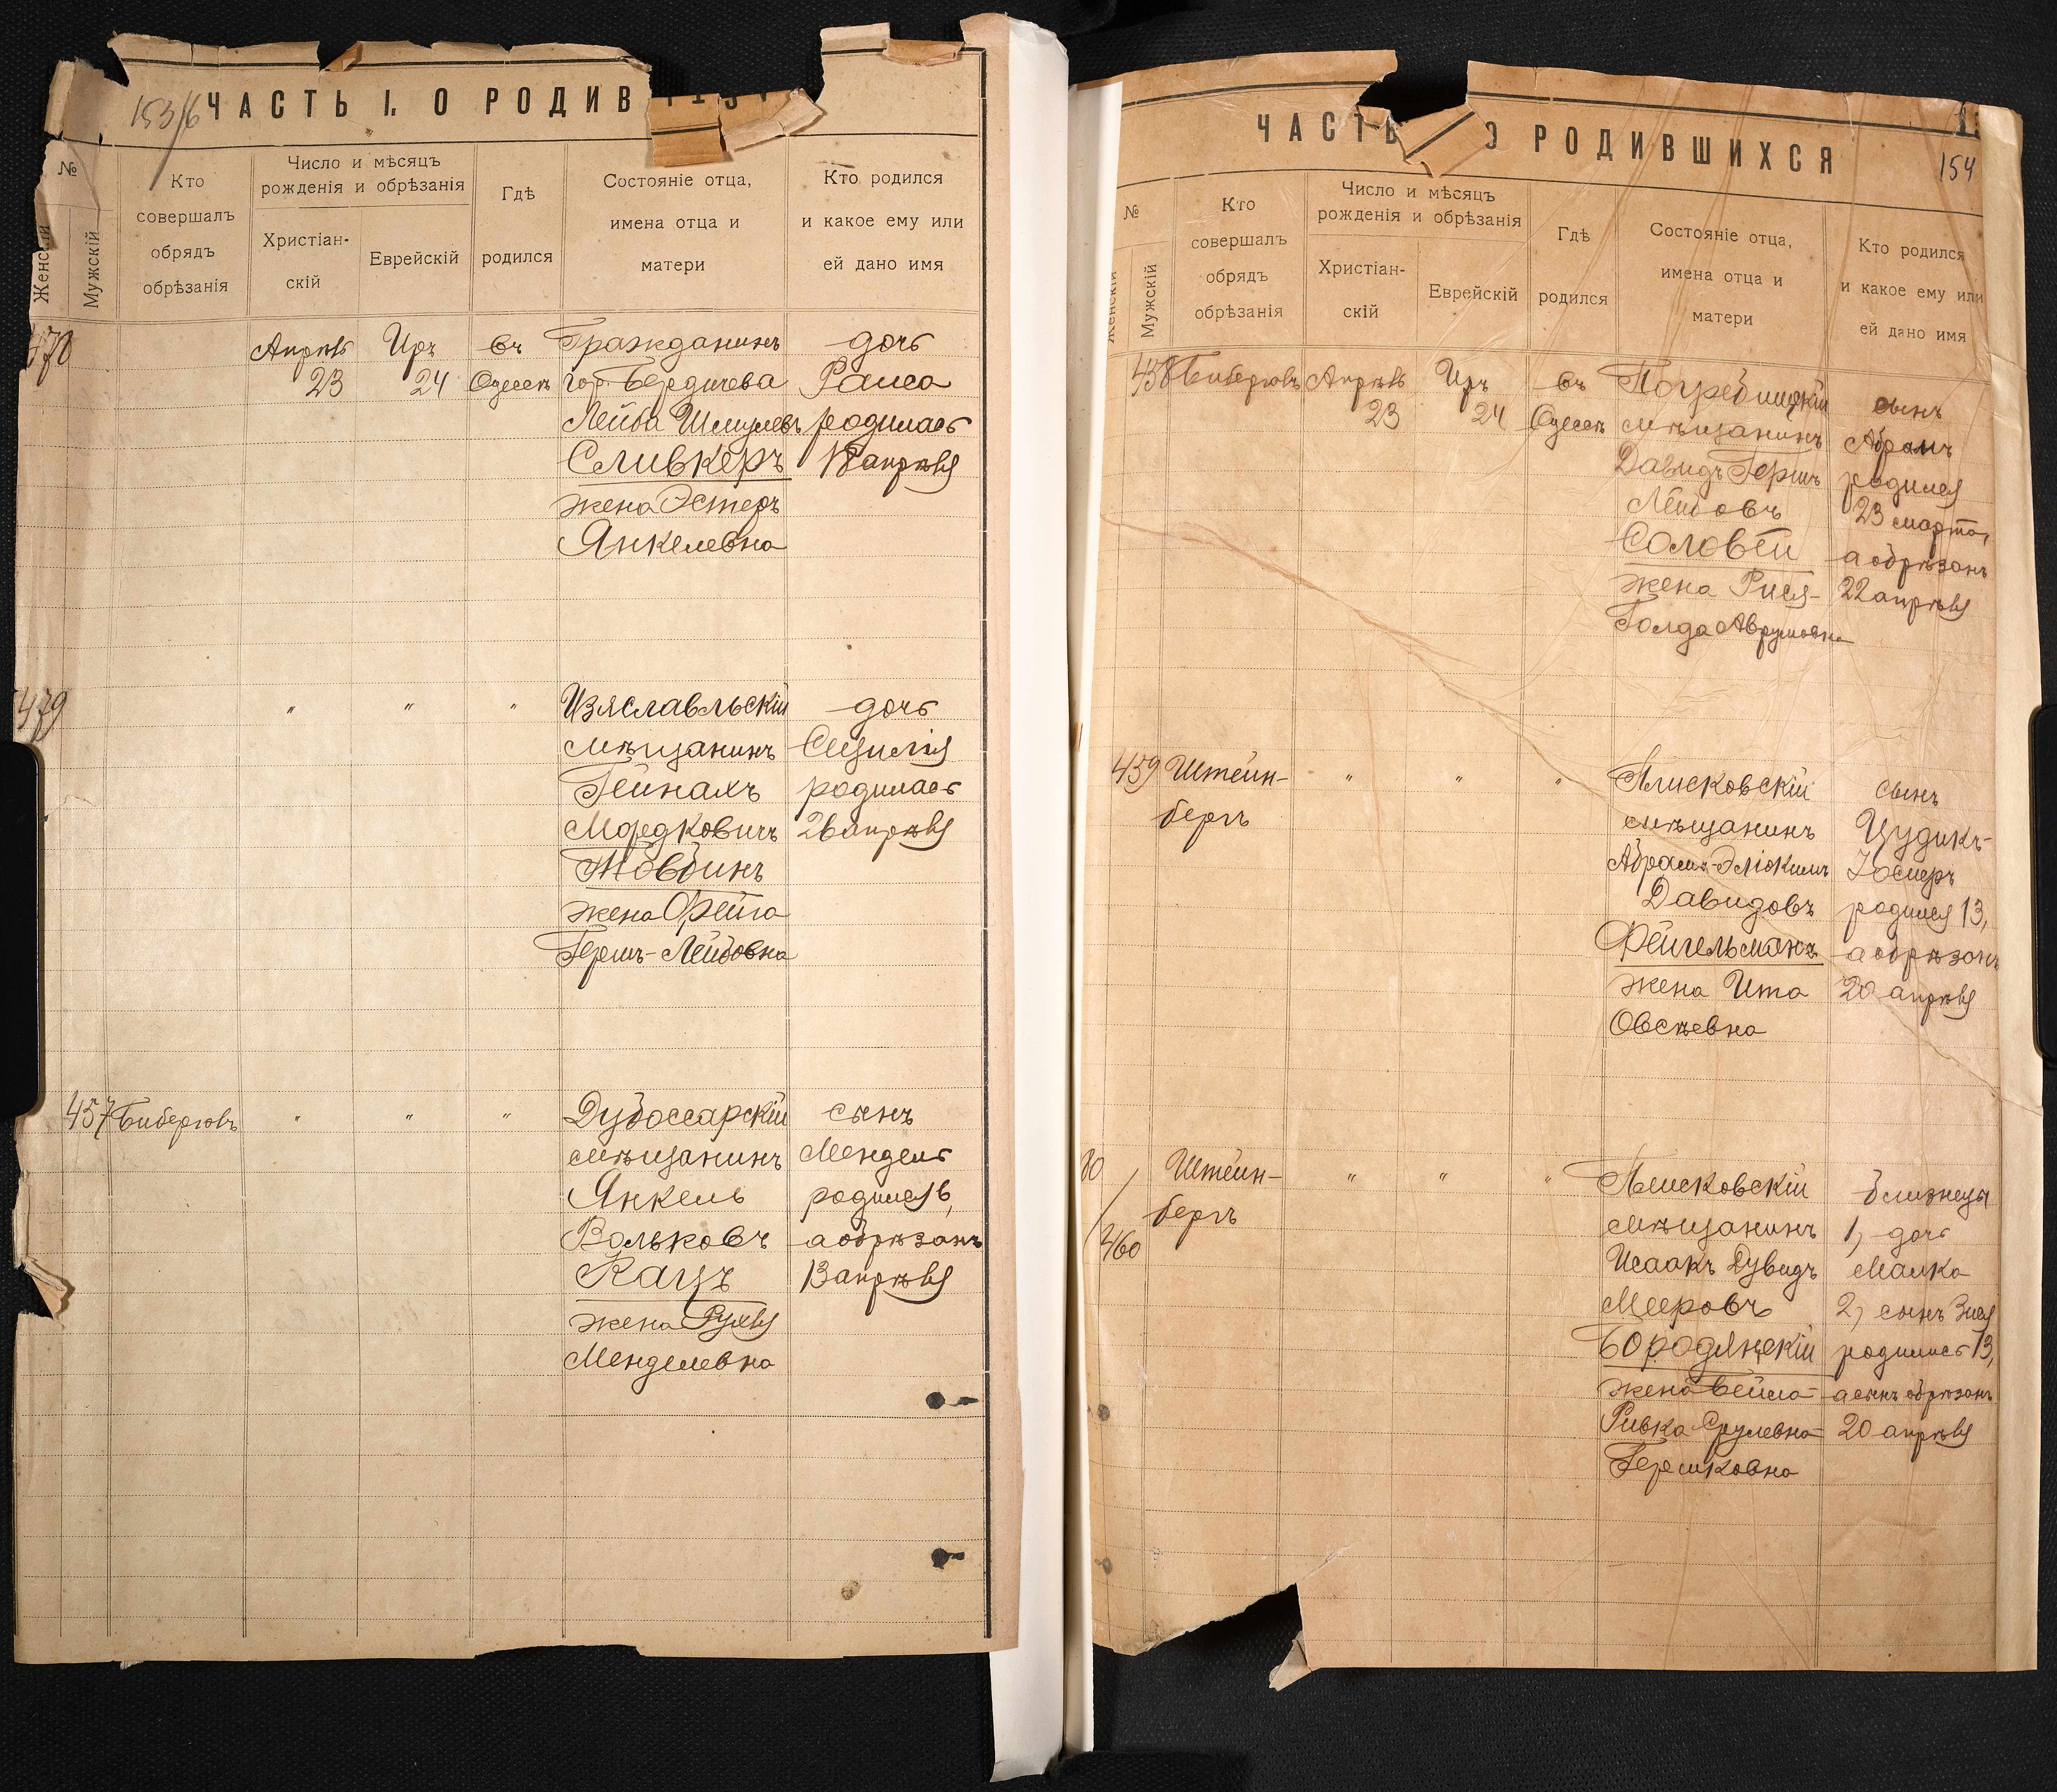 153/6
ЧАСТЬ I. О РОДИВ
№
Женскій
Мужскій
Кто
совершалъ
обрядъ
обрѣзанія
Число и мѣсяцъ
рожденія и обрѣзанія
Христіан-
скій
Еврейскій
Гдѣ
родился
Состояніе отца,
имена отца и
матери
Кто родился
и какое ему или
ей дано имя
Апрѣль Иръ въ Гражданинъ дочь
23 24 Одессѣ гор. Бердичева Раиса
Лейба Шмулевъ родилась
Сливкеръ 18 апрѣля
жена Эстеръ
Янкелевна
479 " " " Изяславльскій дочь
мѣщанинъ Сицилія
Гейнахъ родилась
Мордковичъ 26 апрѣля
Товбинъ
жена Фейга
Гершъ-Лейбовна
457 Биберговъ " " " Дубоссарскій сынъ
мѣщанинъ Мендель
Янкель родился 6,
Вольковъ а обрѣзанъ
Кацъ 13 апрѣля
жена Рухля
Менделевна
ЧАСТЬ О РОДИВШИХСЯ
154
№
Женскій
Мужскій
Кто
совершалъ
обрядъ
обрѣзанія
Число и мѣсяцъ
рожденія и обрѣзанія
Христіан-
скій
Еврейскій
Гдѣ
родился
Состояніе отца,
имена отца и
матери
Кто родился
и какое ему или
ей дано имя
458 Биберговъ Апрѣль Иръ въ Погребищскій сынъ
23 24 Одессѣ мѣщанинъ Абрамъ
Давидъ Гершъ родился
Лейбовъ 23 марта,
Соловей а обрѣзанъ
жена Рися- 22 апрѣля
Голда Аврумовна
459 Штейн- " " " Плисковскій сынъ
бергъ мѣщанинъ Цудикъ-
Абрамъ-Эліокимъ Юсперъ
Давидовъ родился 13,
Фейгельманъ а обрѣзанъ
жена Ита 20 апрѣля
Овсѣевна
80 / 460 Штейн- " " " мѣщанинъ близнецы
бергъ 1, дочь
Исаакъ Дувидъ Малка
Мееровъ 2, сынъ Зися
Бородянскій родились 13,
жена Бейла- а сынъ обрѣзанъ
Ривка Срулевна- 20 апрѣля
Гершковна